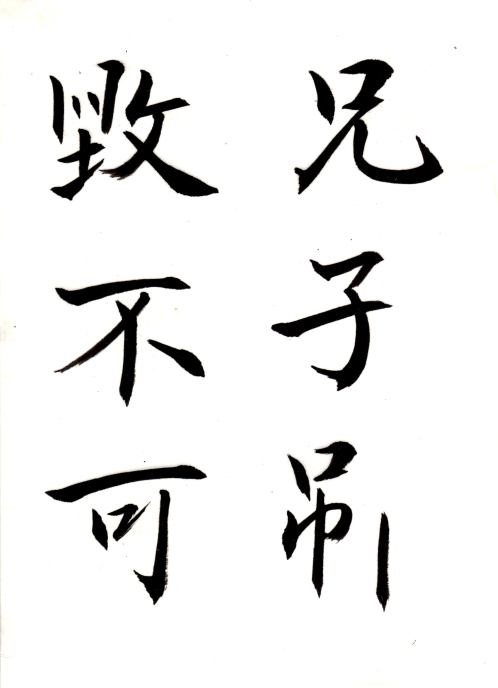 兄子吊
毀不可